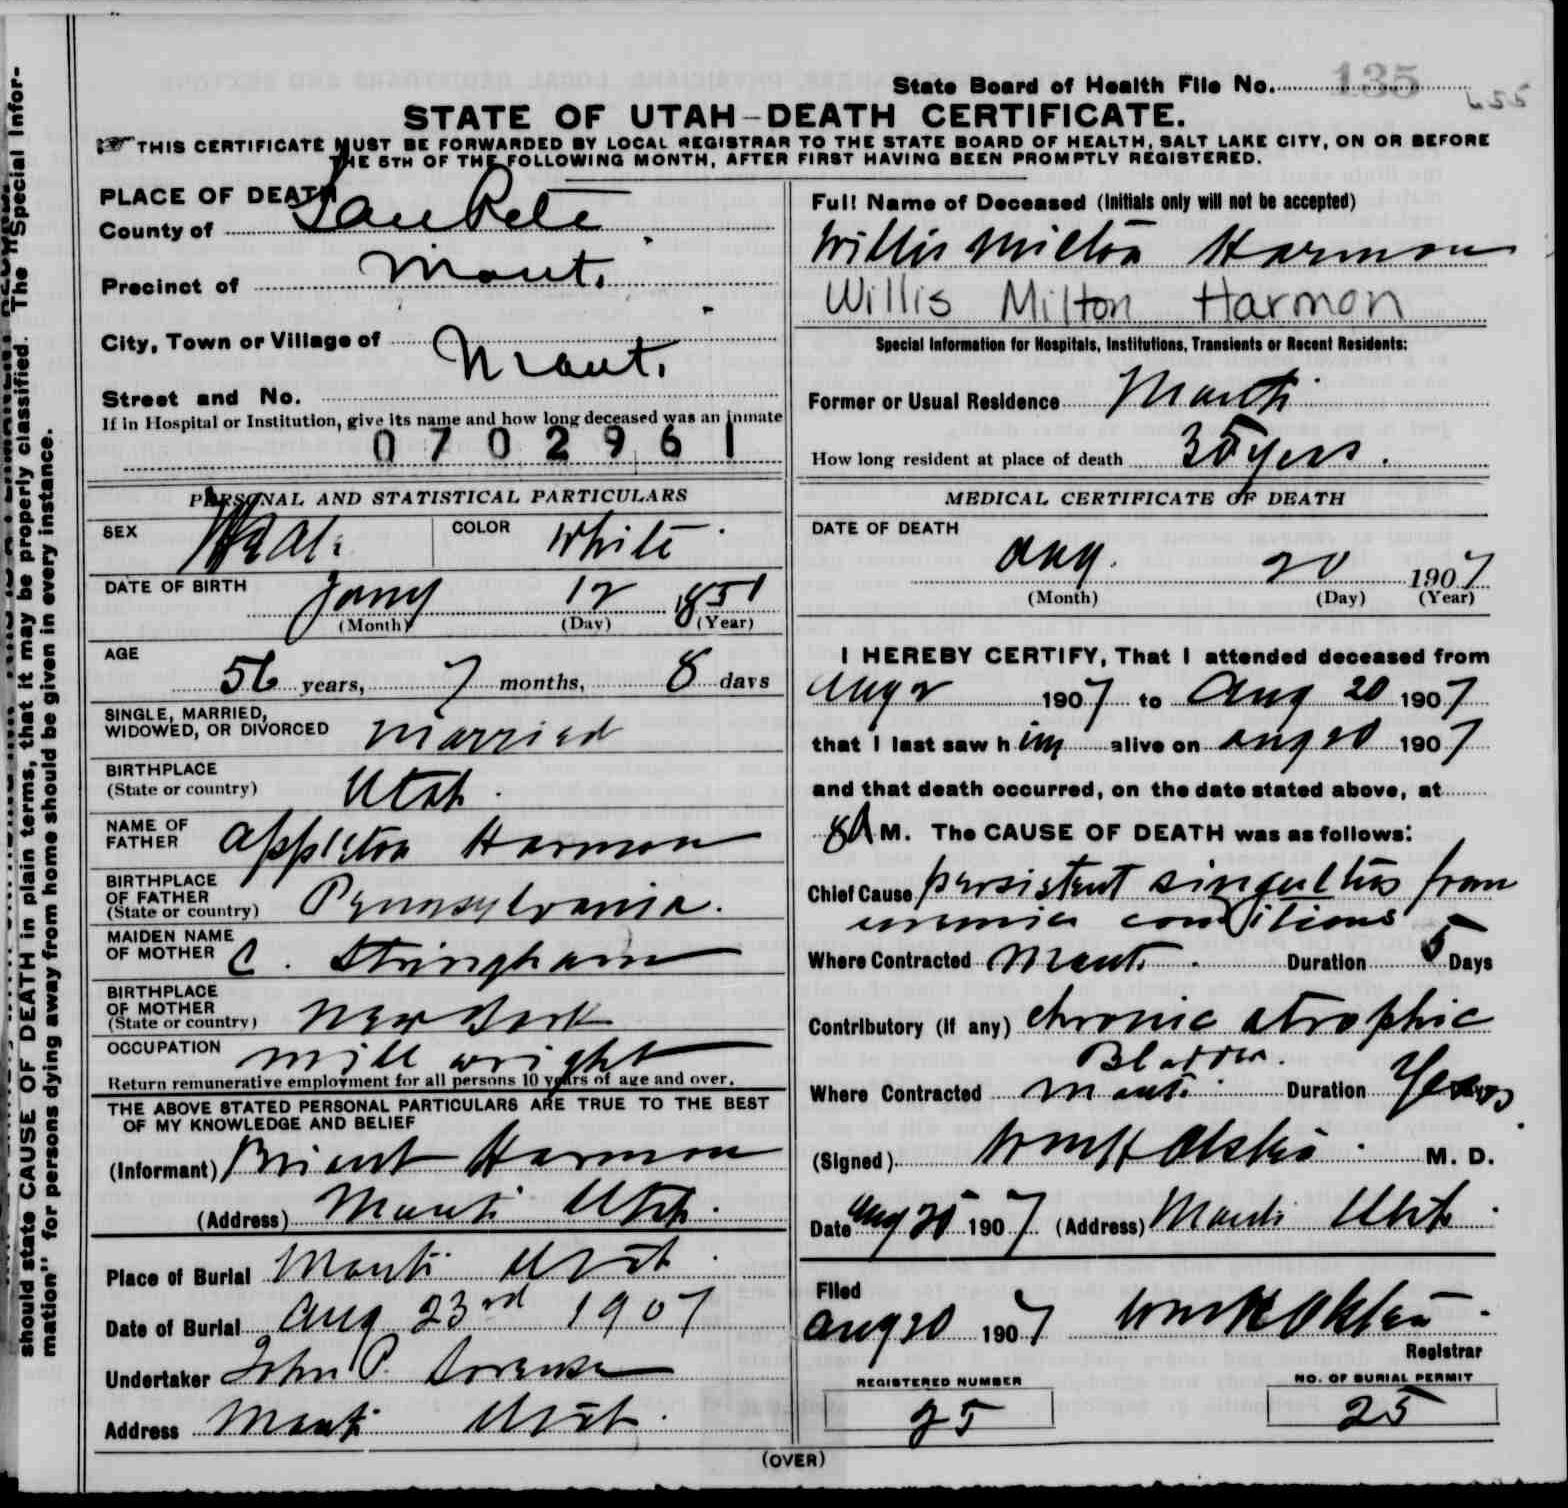 State Board of Health File No. 135
655
STATE OF UTAH-DEATH CERTIFICATE.
THIS CERTIFICATE MUST BE FORWARDED BY LOCAL REGISTRAR TO THE STATE BOARD OF HEALTH, SALT LAKE CITY, ON OR BEFORE
THE 5TH OF THE FOLLOWING MONTH, AFTER FIRST HAVING BEEN PROMPTLY REGISTERED.
should state CAUSE OF DEATH in plain terms, that it may be properly classified. The "Special Infor-
mation" for persons dying away from home should be given in every instance.
PLACE OF DEATH
County of SanPete
Precinct of Manti
City, Town or Village of Manti
Street and No.
If in Hospital or Institution, give its name and how long deceased was an inmate
0702961
PERSONAL AND STATISTICAL PARTICULARS
SEX Male COLOR White
DATE OF BIRTH Jany 12 1851
(Month) (Day) (Year)
AGE
56 years, 7 months, 8 days
SINGLE, MARRIED,
WIDOWED, OR DIVORCED married
BIRTHPLACE
(State or country) Utah
NAME OF
FATHER Appleton Harmon
BIRTHPLACE
OF FATHER
(State or country) Pennsylvania.
MAIDEN NAME
OF MOTHER C. Stringham
BIRTHPLACE
OF MOTHER
(State or country) New York
OCCUPATION mill wright
Return remunerative employment for all persons 10 years of age and over.
THE ABOVE STATED PERSONAL PARTICULARS ARE TRUE TO THE BEST
OF MY KNOWLEDGE AND BELIEF
(Informant) Briant Harmon
(Address) Manti Utah.
Place of Burial Manti Utah
Date of Burial Aug 23rd 1907
Undertaker John P. Sorensen
Address Manti Utah.
Full Name of Deceased (Initials only will not be accepted)
Willis Milton Harmon
Willis Milton Harmon
Special Information for Hospitals, Institutions, Transients or Recent Residents:
Former or Usual Residence Manti
How long resident at place of death 35 yers.
MEDICAL CERTIFICATE OF DEATH
DATE OF DEATH
Aug. 20 1907
(Month) (Day) (Year)
I HEREBY CERTIFY, That I attended deceased from
Aug 2 1907 to Aug 20 1907
that I last saw him alive on Aug 20 1907
and that death occurred, on the date stated above, at
8A M. The CAUSE OF DEATH was as follows:
Chief Cause persistent singultus from
uremic conditions
Where Contracted Manti Duration 5 Days
Contributory (if any) chronic atrophic
Bladder.
Where Contracted Manti Duration Years
(Signed) M. D.
Date Aug 20 1907 (Address) Manti Utah
Filed
Aug 20 1907
Registrar
REGISTERED NUMBER
25
NO. OF BURIAL PERMIT
25
(OVER)